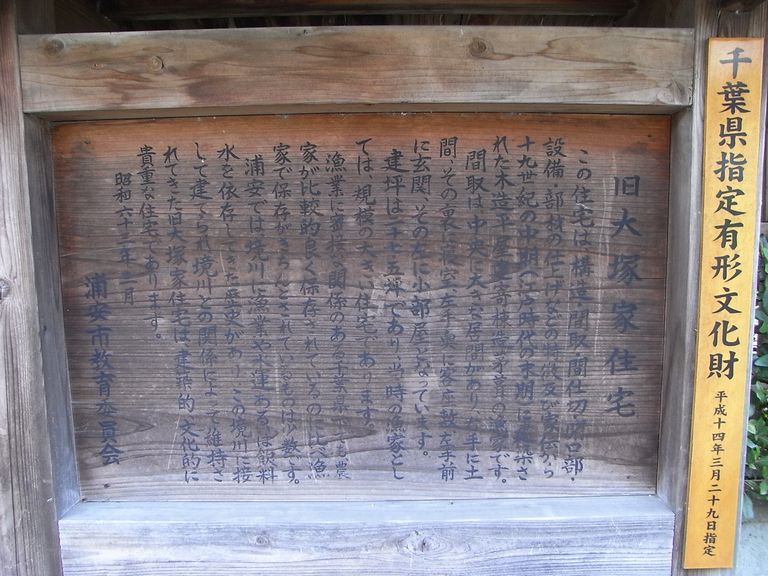 千葉県指定有形文化財 平成十四年三月二十九日指定
旧大塚家住宅
この住宅は、構造・間取・間仕切・開口部・
設備・部材の仕上げなどの特徴及び家伝から
十九世紀の中期(江戸時代の末期)に建築さ
れた木造平屋建寄棟造茅葺の漁家です。
間取は、中央に大きな居間があり、右手に土
間、その裏に
に玄関、その左に小部屋となっています。
建坪は二十七・五坪であり、当時の漁家とし
ては、規模の大きい住宅であります。
漁業に密接な関係のある千葉県でも、農
家が比較的良く保存されているのに比べ、漁
家で保存がきちんとされているものは少数です。
浦安では、境川に漁業や水運あるいは飲料
水を依存してきた歴史があり、この境川に接
して建てられ境川との関係によって維持さ
れてきた旧大塚家住宅は、建築的、文化的に
貴重な住宅であります。
昭和六十二年二月
浦安市教育委員会